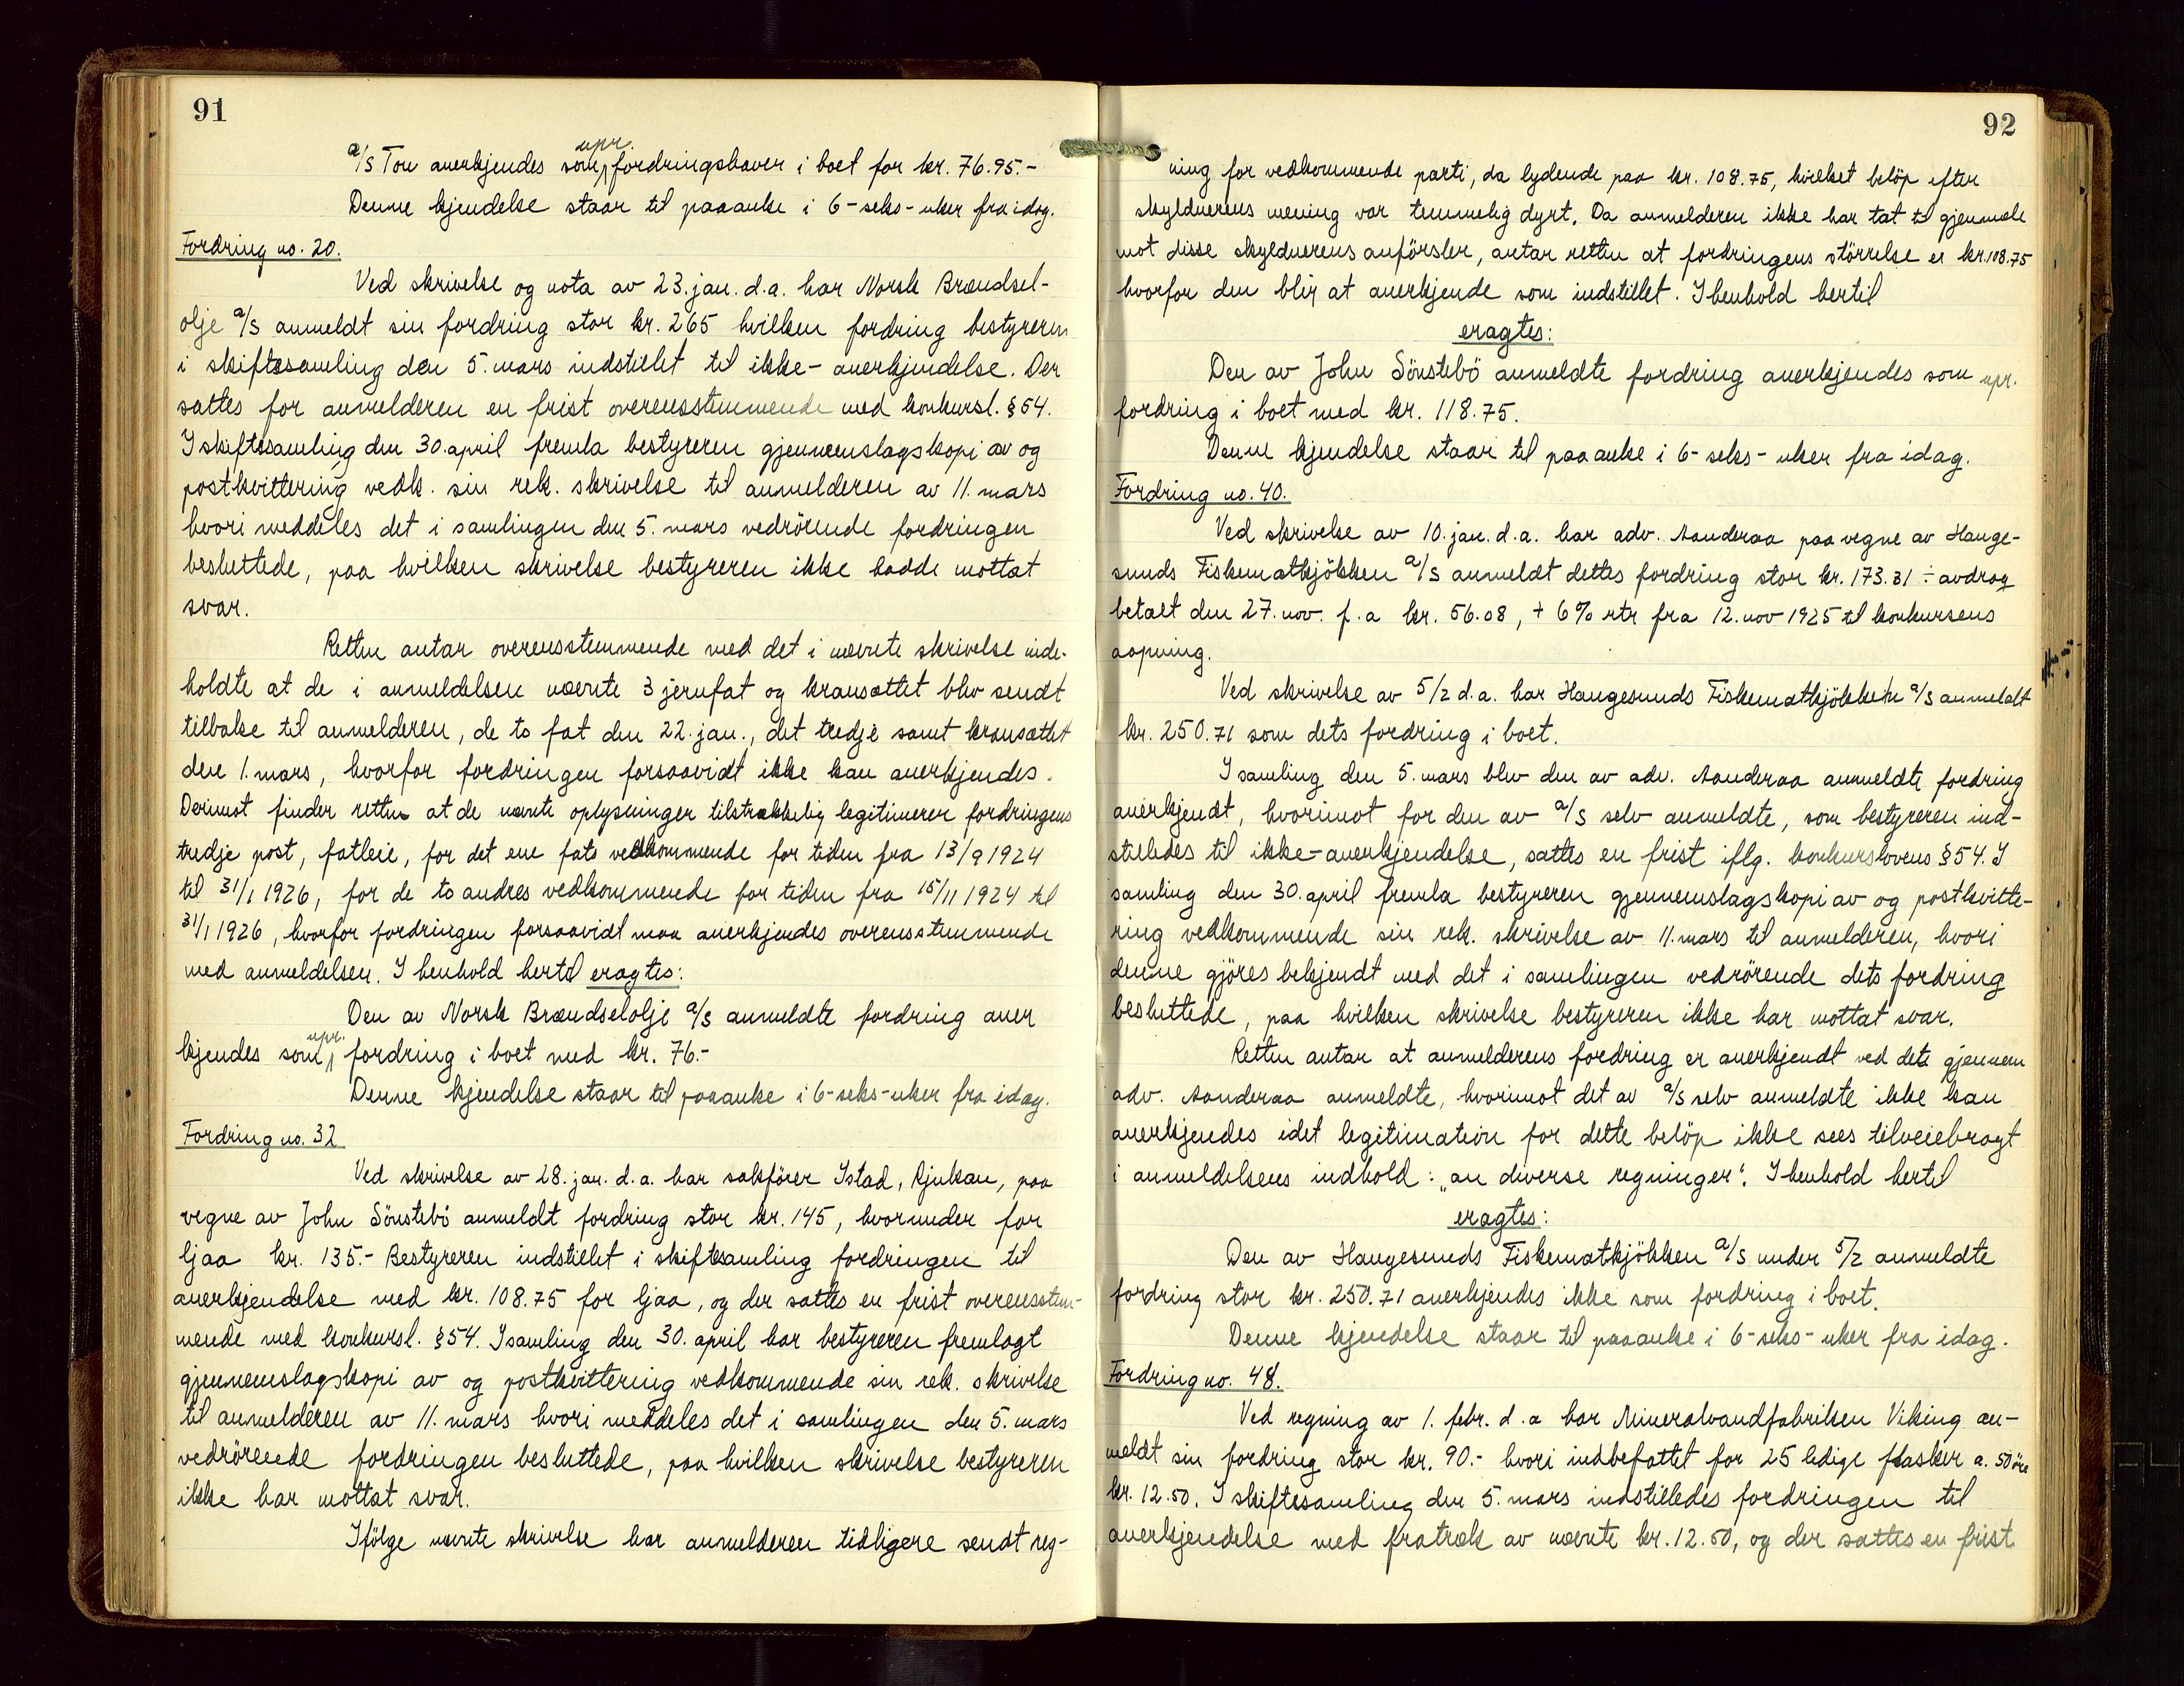 91
upr.
a/s Tou anerkjendes som fordringshaver i boet for kr. 76.95.-
Denne kjendelse staar til paaanke i 6-seks-uker fra idag.
Fordring no. 20.
Ved skrivelse og nota av 23. jan. d.a. har Norsk Brændsel-
olje a/s anmeldt sin fordring stor kr. 265 hvilken fordring bestyreren
i skiftesamling den 5. mars indstillet til ikke-anerkjendelse. Der
sattes for anmelderen en frist overensstemmende med konkursl. § 54.
I skiftesamling den 30. april fremla bestyreren gjennemslagskopi av og
postkvittering vedk. sin rek. skrivelse til anmelderen av 11. mars
hvori meddeles det i samlingen den 5. mars vedrörende fordringen
besluttede, paa hvilken skrivelse bestyreren ikke hadde mottat
svar.
Retten antar overensstemmende med det i nævnte skrivelse inde-
holdte at de i anmeldelsen nævnte 3 jernfat og kransættet blev sendt
tilbake til anmelderen, de to fat den 22. jan., det tredje samt kransættet
den 1. mars, hvorfor fordringen forsaavidt ikke kan anerkjendes.
Derimot finder retten at de nævnte oplysninger tilstrækkelig legitimerer fordringens
tredje post, fatleie, for det ene fats vedkommende for tiden fra 13/9 1924
til 31/1 1926, for de to andres vedkommende for tiden fra 15/11 1924 til
31/1 1926, hvorfor fordringen forsaavidt maa anerkjendes overensstemmende
med anmeldelsen. I henhold hertil eragtes:
Den av Norsk Brændselolje a/s anmeldte fordring aner
upr.
kjendes som fordring i boet med kr. 76.-
Denne kjendelse staar til paaanke i 6-seks-uker fra idag.
Fordring no. 32
Ved skrivelse av 28. jan. d.a. har sakförer Istad, Rjukan, paa
vegne av John Sönstebö anmeldt fordring stor kr. 145, hvorunder for
ljaa kr. 135.- Bestyreren indstillet i skiftesamling fordringen til
anerkjendelse med kr. 108.75 for ljaa, og der sattes en frist overensstem-
mende med konkursl. § 54. I samling den 30. april har bestyreren fremlagt
gjennemslagskopi av og postkvittering vedkommende sin rek. skrivelse
til anmelderen av 11. mars hvori meddeles det i samlingen den 5. mars
vedrörende fordringen besluttede, paa hvilken skrivelse bestyreren
ikke har mottat svar.
Ifölge nævnte skrivelse har anmelderen tidligere sendt reg-
92
ning for vedkommende parti, da lydende paa kr. 108.75, hvilket belöp efter
skyldnerens mening var temmelig dyrt. Da anmelderen ikke har tat til gjenmæle
mot disse skyldnerens anförsler, antar retten at fordringens störrelse er kr. 108.75
hvorfor den blir at anerkjende som indstillet. I henhold hertil
eragtes:
Den av John Sönstebö anmeldte fordring anerkjendes som upr.
fordring i boet med kr. 118.75.
Denne kjendelse staar til paaanke i 6-seks-uker fra idag.
Fordring no. 40.
Ved skrivelse av 10. jan. d.a. har adv. Aanderaa paa vegne av Hauge-
sunds Fiskematkjökken a/s anmeldt dettes fordring stor kr. 173.31 ÷ avdrag
betalt den 27. nov. f.a kr. 56.08, + 6% rtr fra 12. nov 1925 til konkursens
aapning.
Ved skrivelse av 5/2 d.a. har Haugesunds Fiskematkjökken a/s anmeldt
kr. 250.71 som dets fordring i boet.
I samling den 5. mars blev den av adv. Aanderaa anmeldte fordring
anerkjendt, hvorimot for den av a/s selv anmeldte, som bestyreren ind-
stilledes til ikke-anerkjendelse, sattes en frist iflg. konkurslovens § 54. I
samling den 30. april fremla bestyreren gjennemslagskopi av og postkvitte-
ring vedkommende sin rek. skrivelse av 11. mars til anmelderen, hvori
denne gjöres bekjendt med det i samlingen vedrörende dets fordring
besluttede, paa hvilken skrivelse bestyreren ikke har mottat svar.
Retten antar at anmelderens fordring er anerkjendt ved det gjennem
adv. Aanderaa anmeldte, hvorimot det av a/s selv anmeldte ikke kan
anerkjendes idet legitimation for dette belöp ikke sees tilveiebragt
i anmeldelsens indhold: "an diverse regninger". I henhold hertil
eragtes:
Den av Haugesunds Fiskematkjökken a/s under 5/2 anmeldte
fordring stor kr. 250.71 anerkjendes ikke som fordring i boet.
Denne kjendelse staar til paaanke i 6-seks-uker fra idag.
Fordring no. 48.
Ved regning av 1. febr. d.a har Mineralvandfabriken Viking an-
meldt sin fordring stor kr. 90.- hvori indbefattet for 25 ledige flasker a. 50 öre
kr. 12.50. I skiftesamling den 5. mars indstilledes fordringen til
anerkjendelse med fratræk av nævnte kr. 12.50, og der sattes en frist